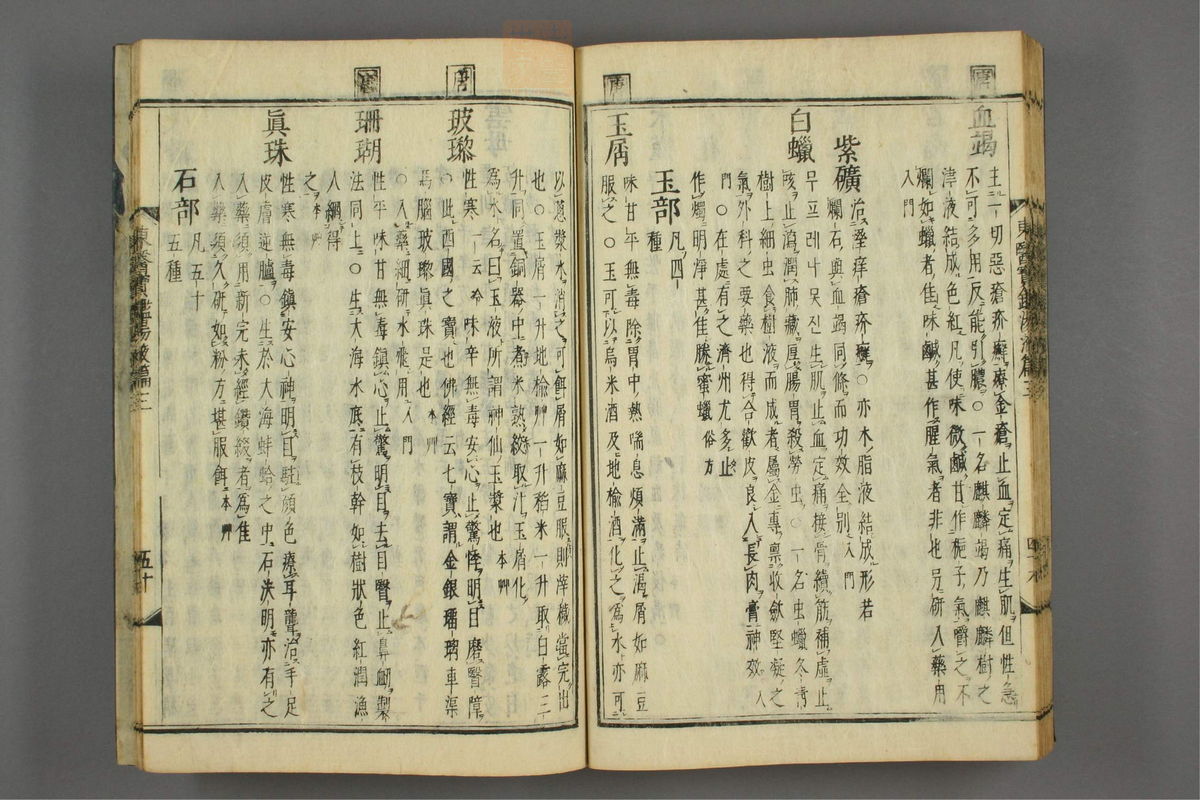 唐
血竭
主一切惡瘡疥癬療金瘡止血定痛生肌但性急
不可多用反能引膿○一名麒麟竭乃麒麟樹之
津液結成色紅凡使味微鹹甘作梔子氣嚼之不
爛如蠟者佳味鹹甚作腥氣者非也另硏入藥用
入門
紫礦
治濕痒瘡疥癬○亦木脂液結成形若
爛石與血竭同條而功效全別入門
白蠟
무프레나모진 生肌止血定痛接骨續筋補虛止
咳止瀉潤肺藏厚腸胃殺勞虫○一名虫蠟冬靑
樹上細虫食樹液而成者屬金專禀收斂堅凝之
氣外科之要藥也得合歡皮良入長肉膏神效入
門○在處有之濟州尤多止
作燭明淨甚佳勝蜜蠟俗方
玉部 凡四種
唐
玉屑
味甘平無毒除胃中熱喘息煩滿止渴屑如麻豆
服之○玉可以烏米酒及地楡酒化之爲水亦可
以葱漿水消之可餌屑如麻豆服則滓穢當完出
也○玉屑一升地楡艸一升稻米一升取白露三
升同置銅器中煮米熟絞取汁玉屑化
爲水名曰玉液所謂神仙玉漿也本艸
唐
玻瓈
性寒一云冷味辛無毒安心止驚悸明目磨瞖障
○此西國之寶也佛經云七寶謂金銀瑠璃車渠
馬腦玻瓈眞珠是也本艸
○入藥細硏水飛用入門
珊瑚
性平味甘無毒鎭心止驚明目去目瞖止鼻衄製
法同上○生大海水底有枝幹如樹狀色紅潤漁
人網得
之本艸
眞珠
性寒無毒鎭安心神明目駐顔色療耳聾治手足
皮膚逆臚○生於大海蚌蛤之中石決明亦有之
入藥須用新完未經鑽綴者爲佳
入藥須久硏如粉方堪服餌本艸
石部 凡五十五種
東醫寶鑑湯液篇三
五十